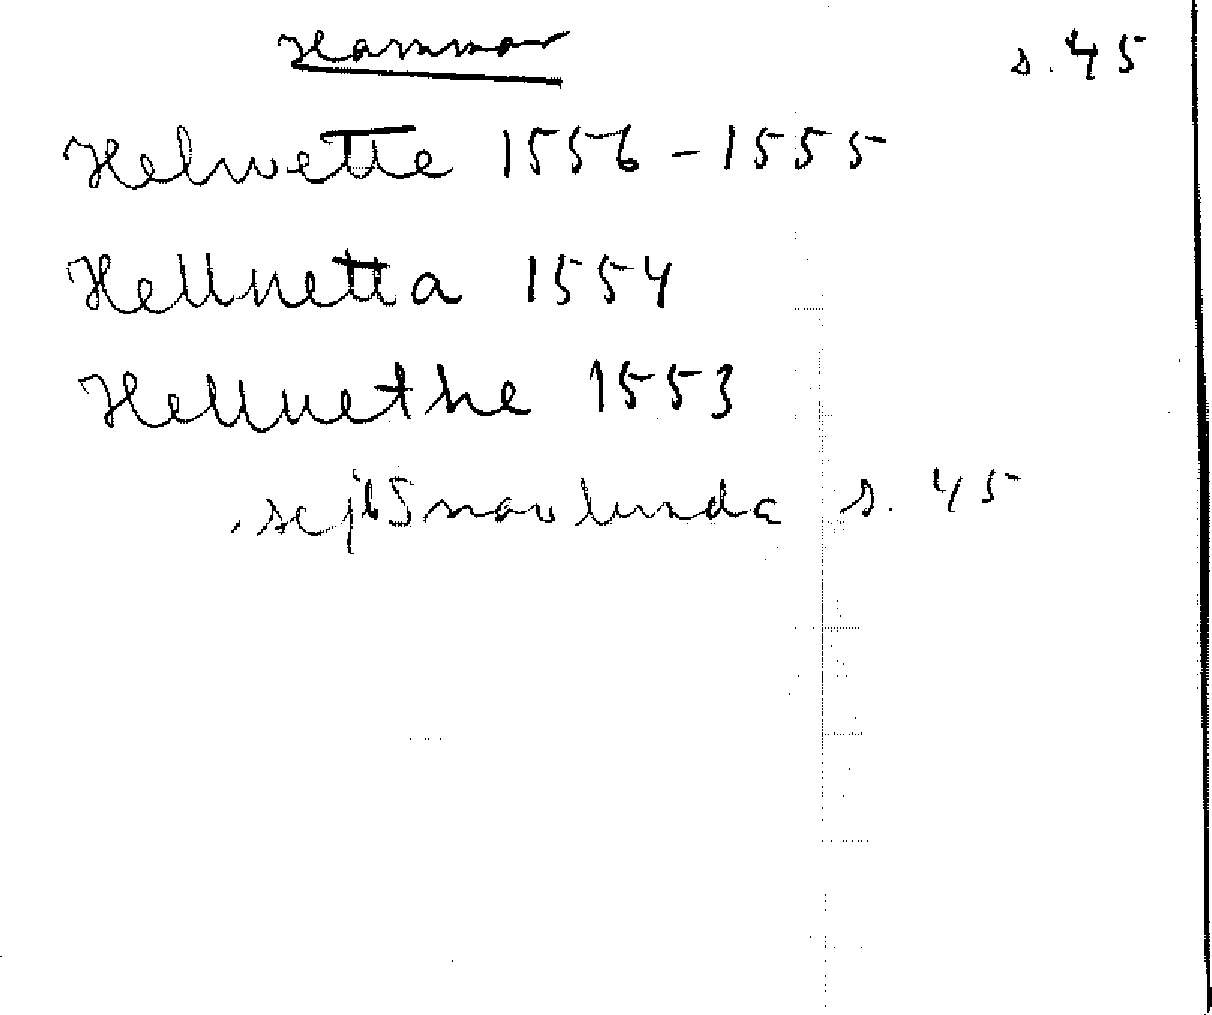 Hammar s. 45
Helwette 1556-1555
Helluetta 1554
Helluethe 1553
, sej Snavlunda s. 45